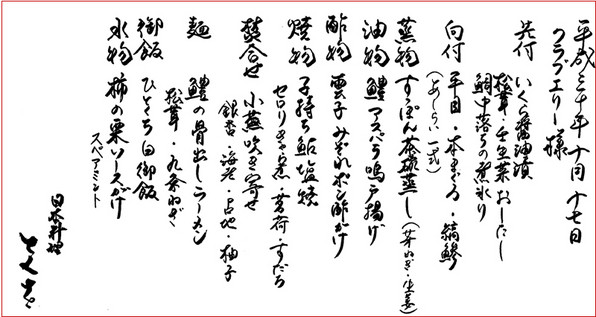 平成三十年十月十七日
クラブエリー様
先付 いくら醤油漬
松茸・壬生菜おひたし
鯛中落ちの煮氷り
向付 平目・本まぐろ・縞鯵
(あしらい一式)
蒸物 すっぽん茶碗蒸し(芽ねぎ・生姜)
油物 鱧アスパラ鳴戸揚げ
酢物 雲子みぞれポン酢がけ
焼物 子持ち鮎塩焼
セロリきゃら煮・茗荷・すだち
焚合せ 小蕪吹き寄せ
銀杏・海老・占地・柚子
麺 鱧の骨出しラーメン
松茸・九条ねぎ
御飯 ひとくち白御飯
水物 柿の栗ソースがけ
スペアミント
日本料理